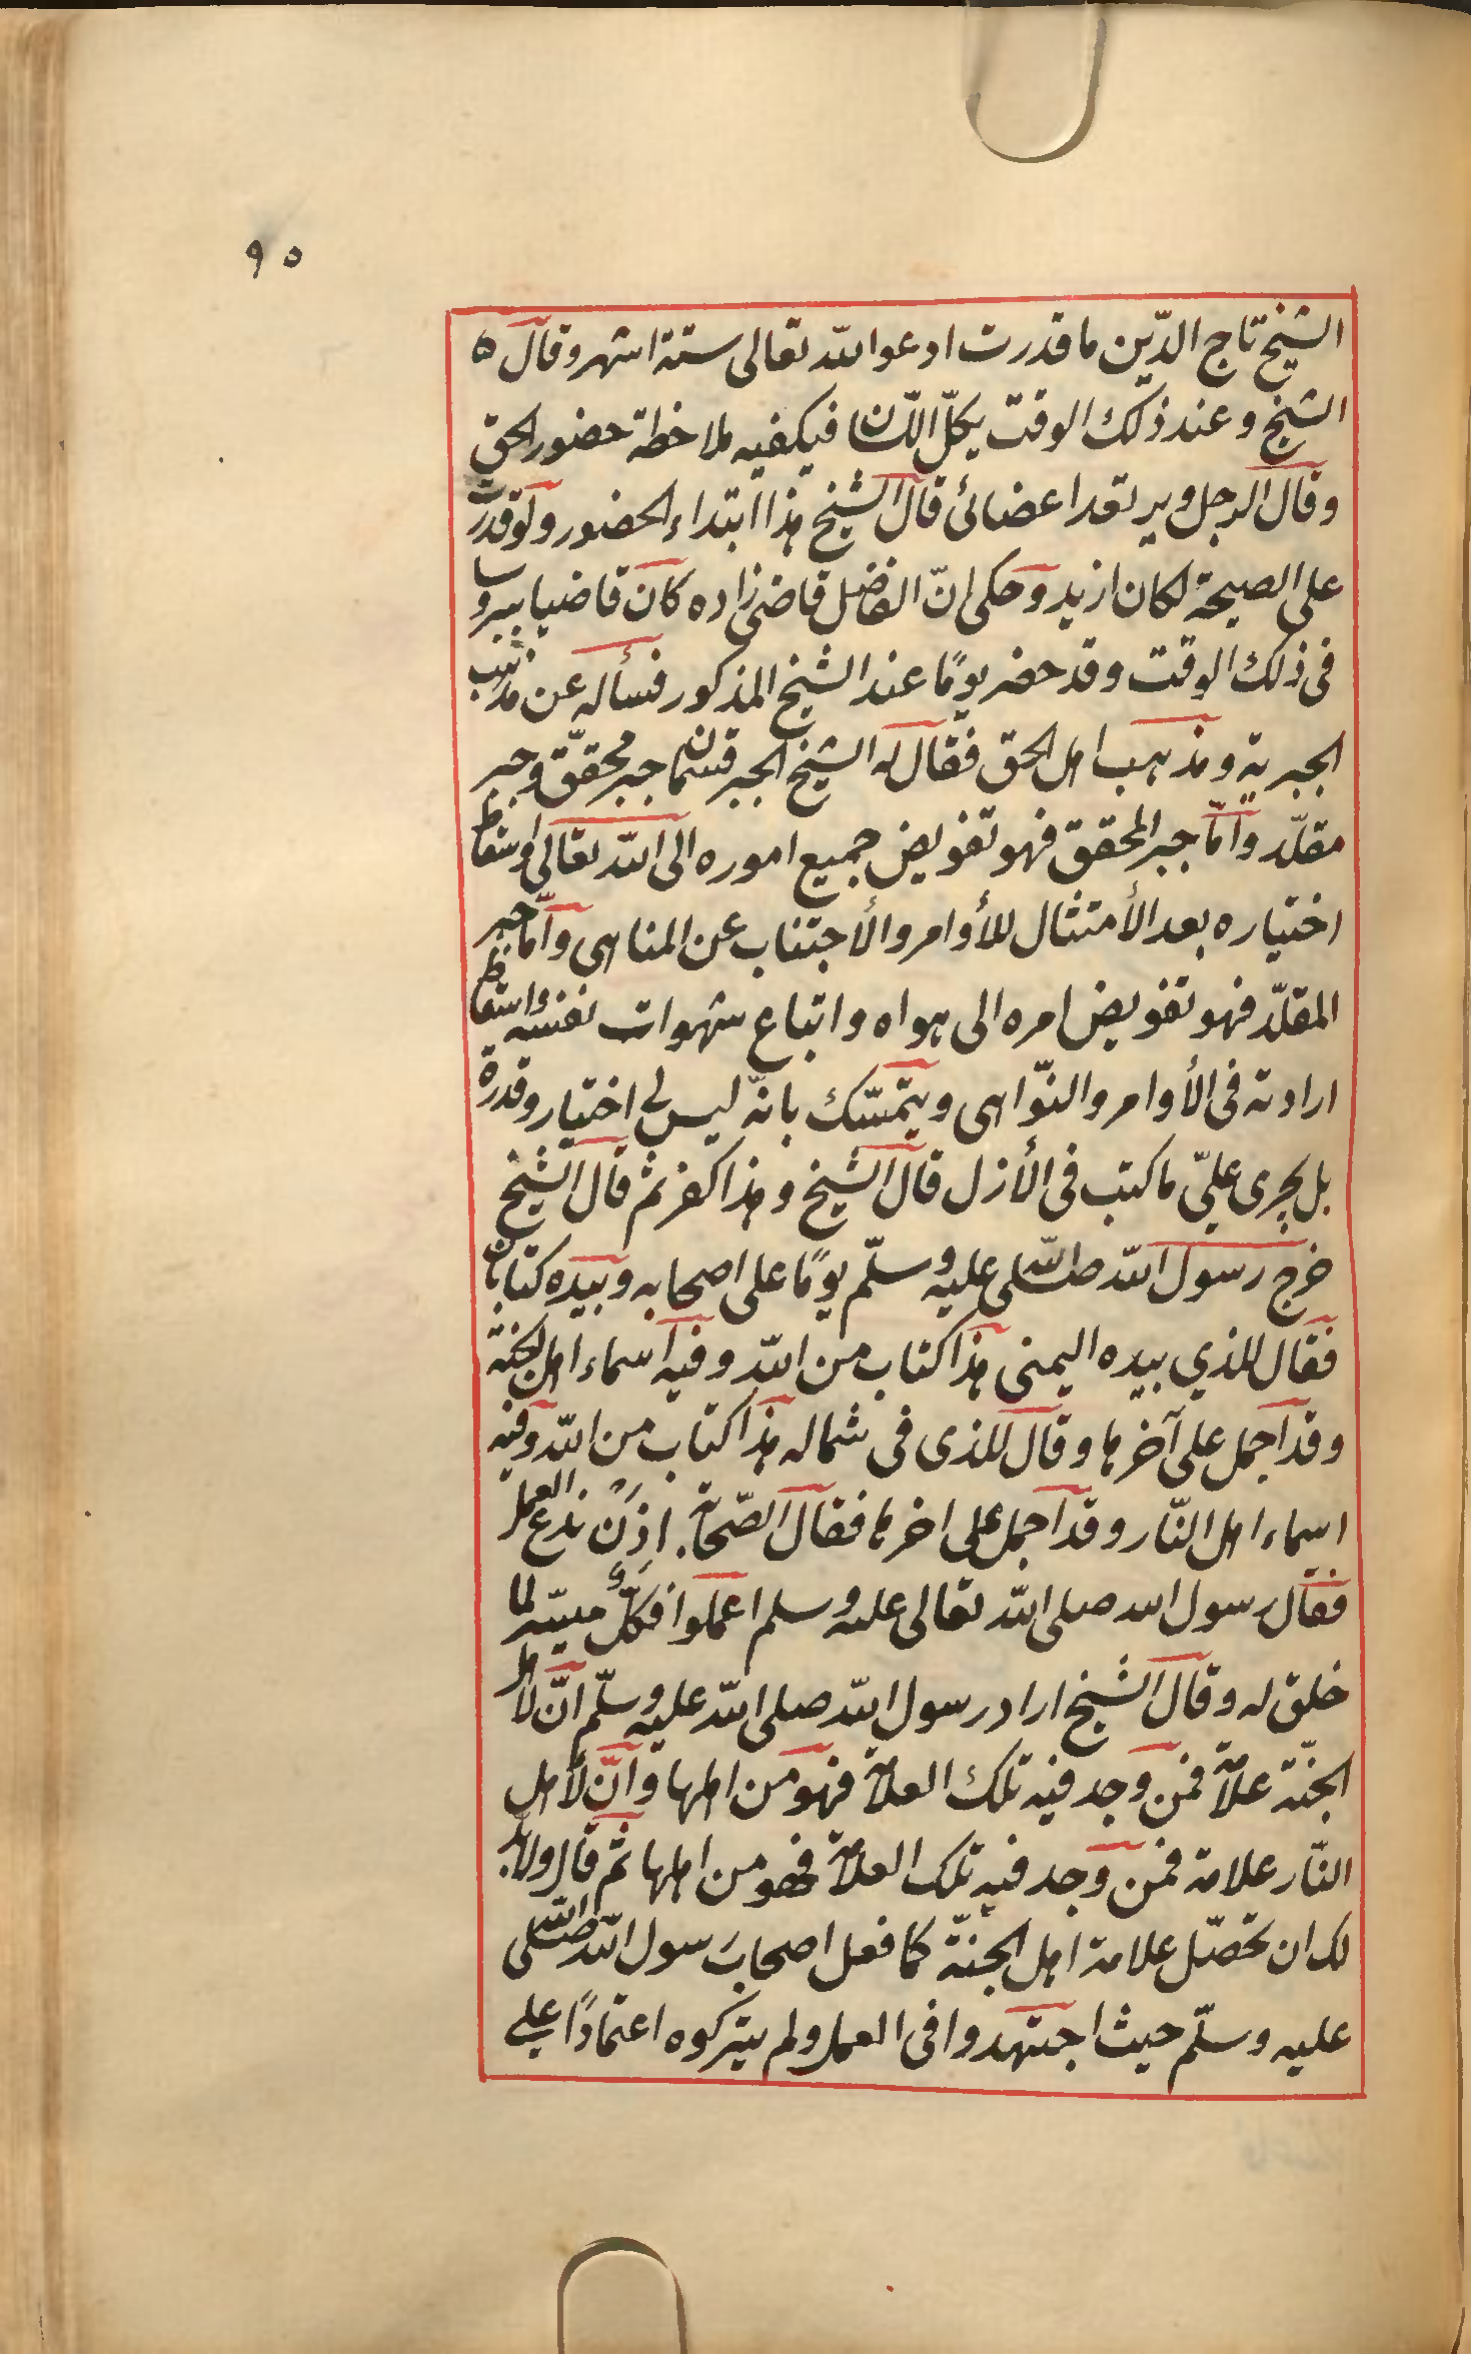 ٩٥
الشيخ تاج الدّين ما قدرت ادعوا الله تعالى ستة اشهر وقال ه
الشيخ وعند ذلك الوقت يكلّ اللّسان فيكفيه ملاحظة حضور الحق
وقال الرجل ويرتعد اعضائى قال الشيخ هذا ابتداء الحضور ولو قدرت
على الصيحة لكان ازيد وحكى انّ الفاضل قاضى زاده كان قاضيا ببروسا
فى ذلك الوقت وقد حضر يومًا عند الشيخ المذكور فسأله عن مذهب
الجبرية ومذهب اهل الحق فقال له الشيخ الجبر قسمان جبر محقّق وجبر
مقلّد وأمّا جبر المحقق فهو تفويض جميع اموره الى الله تعالى واسقاط
اختياره بعد الأمتثال للأوامر والأجتناب عن المناهى وأمّا جبر
المقلّد فهو تفويض امره الى هواه واتباع شهوات نفسه واسقاط
ارادته فى الأوامر والنّواهى ويتمسّك بانّه ليس لى اختيار وقدرة
بل يجرى علىّ ما كتب فى الأزل قال الشيخ وهذا كفر ثم قال الشيخ
خرج رسول الله صلى الله عليه وسلّم يومًا على اصحابه وبيده كتابان
فقال للذي بيده اليمنى هذا كتاب من الله وفيه اسماء اهل الجنّة
وقد اجمل على آخرها وقال للذى فى شماله هذا كتاب من الله وفيه
اسماء اهل النّار وقد اجمل على اخرها فقال الصّحابة اذن ندع العمل
فقال رسول الله صلى الله تعالى عليه وسلم اعملوا فكلٌّ ميسّر لما
خلق له وقال الشيخ اراد رسول الله صلى الله عليه وسلّم انّ لاهل
الجنّة علامة فمن وجد فيه تلك العلامة فهو من اهلها وانّ لأهل
النّار علامة فمن وجد فيه تلك العلامة فهو من اهلها ثم قال ولابد
لك ان تحصّل علامة اهل الجنّة كما فعل اصحاب رسول الله صلى الله
عليه وسلّم حيث اجتهدوا فى العمل ولم يتركوه اعتمادًا على